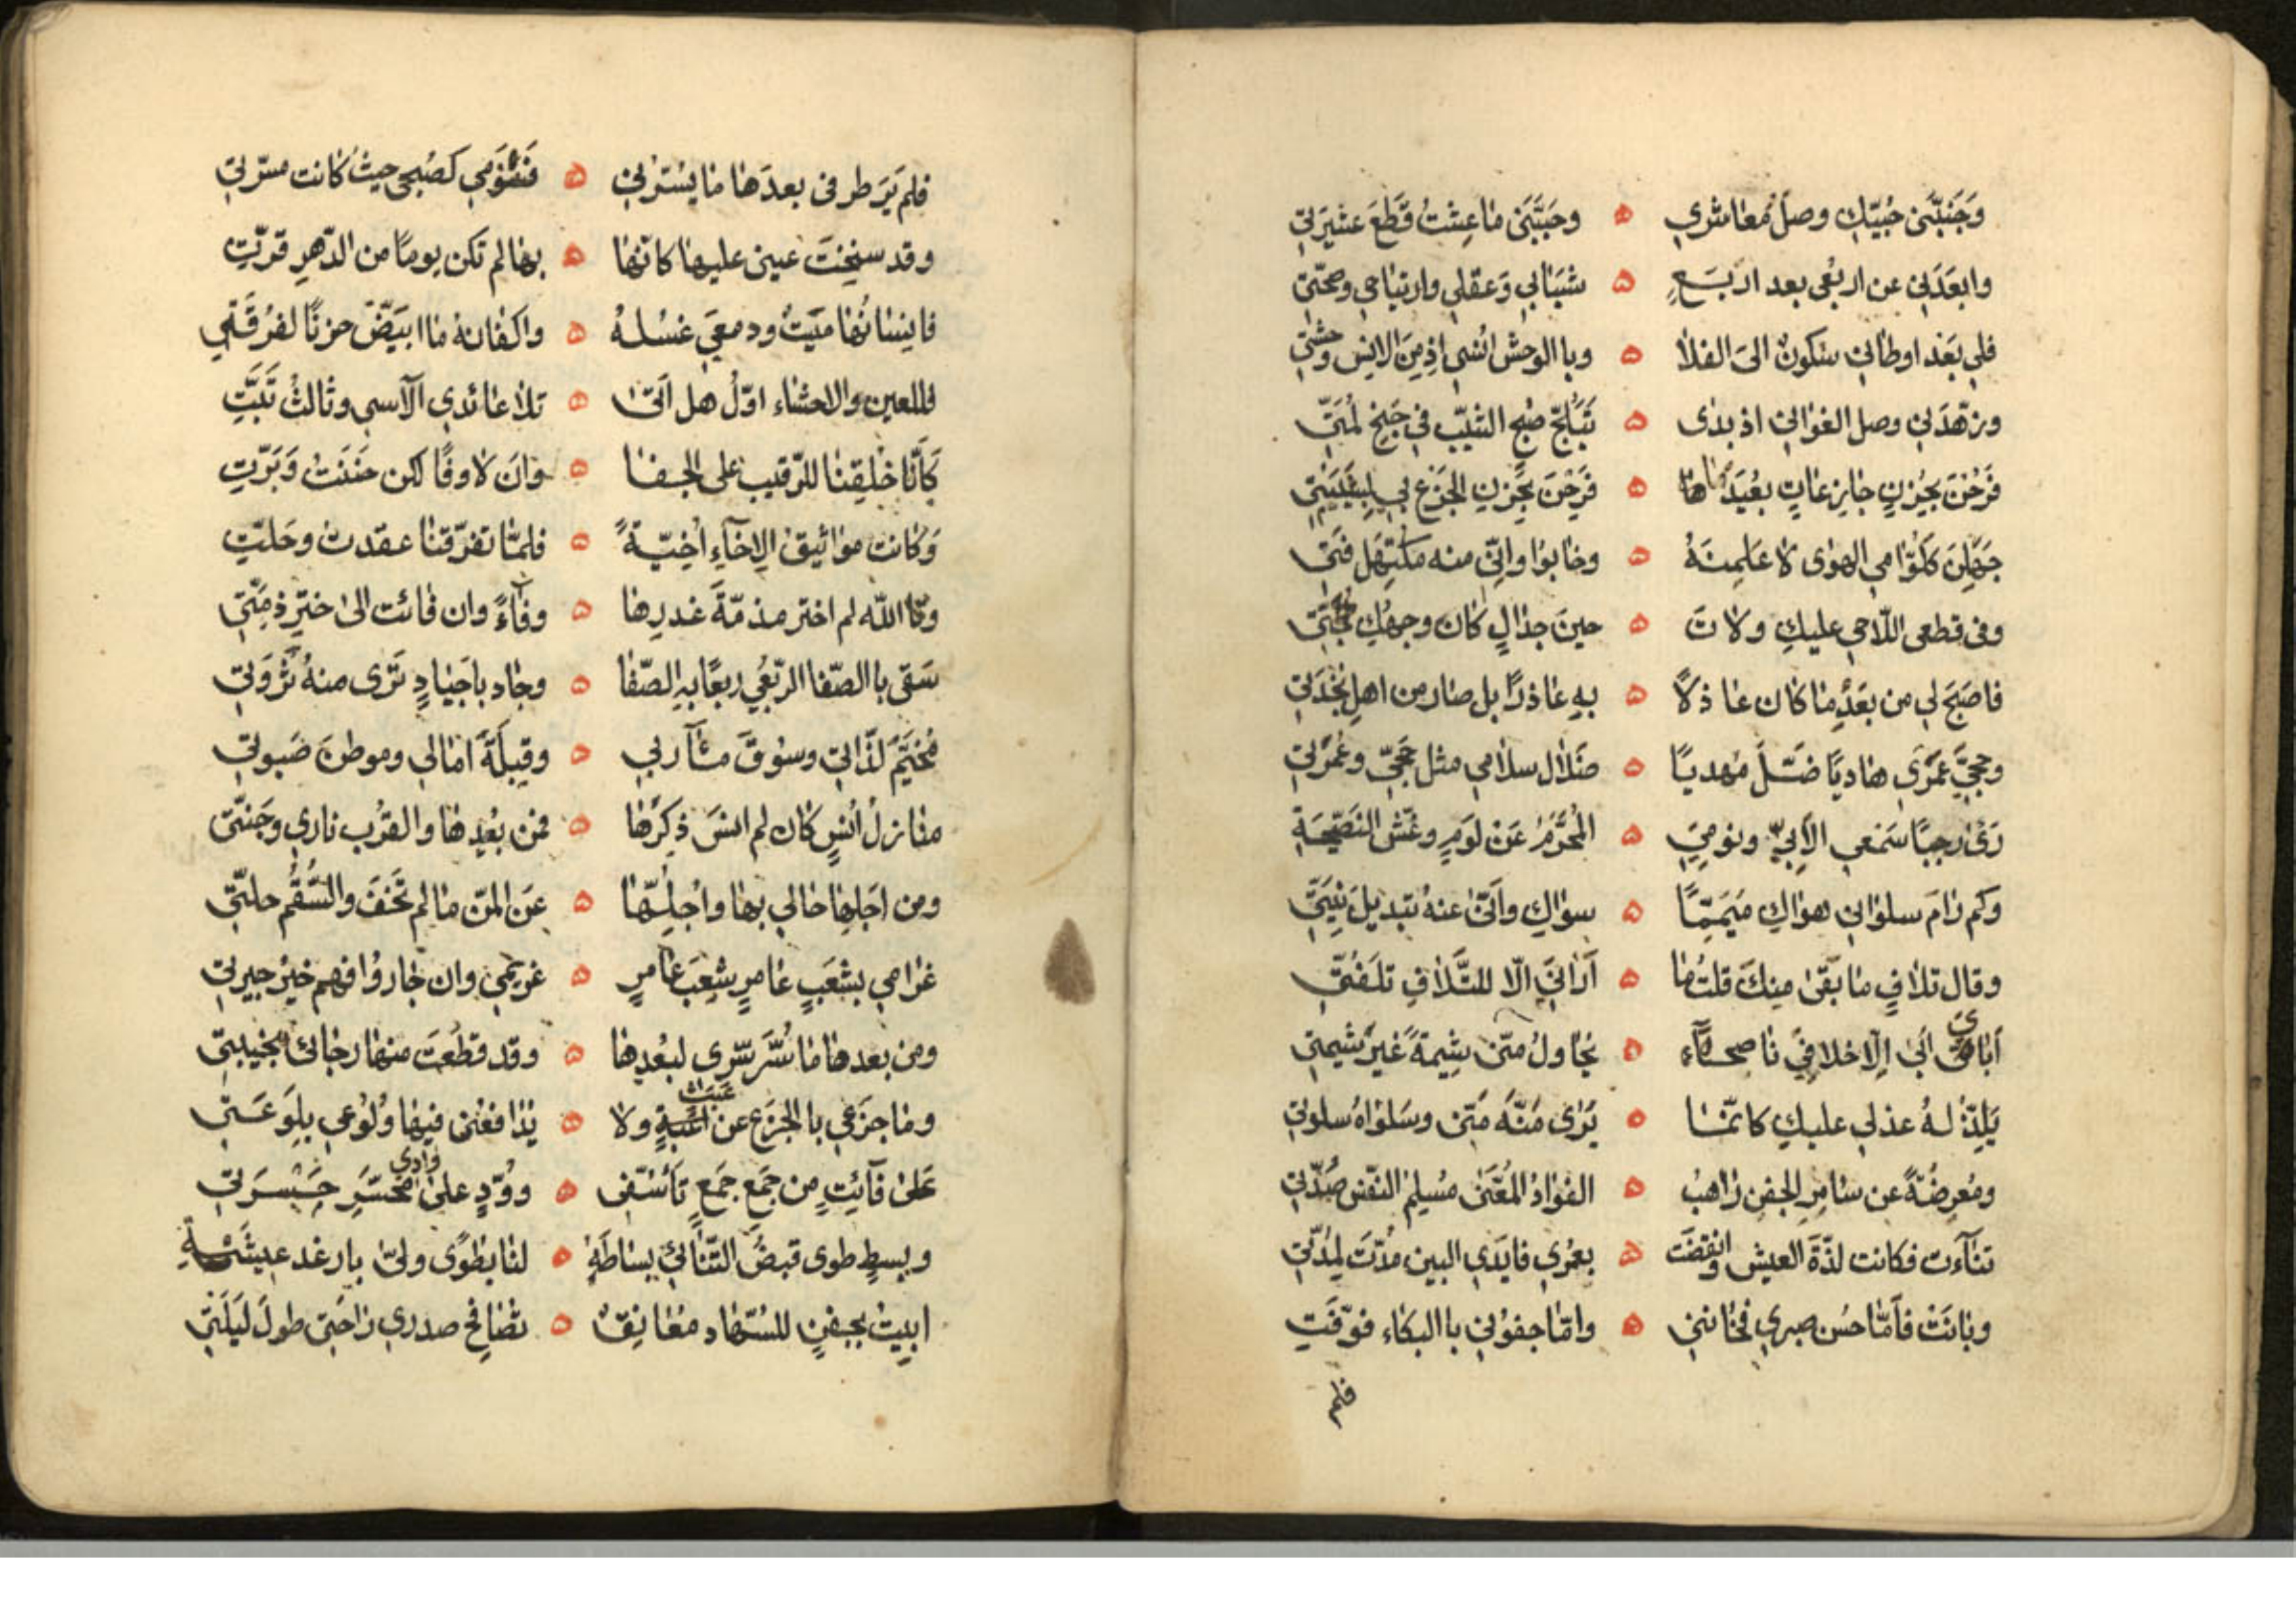 وَجَنَّبَنى حُبّيكِ وصلَ مُعاشرى ه وحبَّبَنى ماعِشتُ قَطْعَ عشيرَتى
وابعَدَنى عن اربُعى بعد اربَعٍ ه شبَابى وَعقلى وارتياحى وصحّتى
فلى بَعْد اوطانى سكونٌ الى الفلا ه وباالوحش انُسى اذمِنَ الانِس وحشتى
وزهّدَنى وصل الغوانى اذ بدى ه تَبَلّجَ صُبْح الشّيب فى جَنِحْ لمَّتى
فَرُحْنَ بحُزنٍ جازِعاتٍ بعُيَدَما ه فَرَحْنَ بحَزنِ الجَزْعِ بى لِشبَيبَتى
جَهَلِنَ كلَوّامى الهوى لا عَلمِنَهُ ه وخابوُا وانّى منه مكتهِل فَتى
وفى قطعى اللّاحى عليكِ ولاتَ ه حينَ جدالٍ كان وجهكِ حُجّتى
فاصبَحَ لى من بعَدِما كان عاذلاً ه بهِ عاذرًا بل صار من اهلِ نجْدَتى
وحجىَّ عمَرْى هاديًا ضَلَّ مُهديًا ه ضَلال سلامى مثل حَجىّ وعُمرتى
رَئ رجبًا سَمعى الأَبىّ ونومىَ ه المُحَرَّمُ عَن لَومٍ وغشّ النَصّيحَةِ
وكم رامَ سلوانى هواكِ ميَممِّاً ه سواكِ واَنّى عنه تبديلَ نيّتى
وقال تلافِ ما بقَى مِنكَ قلتُ ما ه اَرانى الّا للتّلافِ تلَفتّى
اِبائى اَبى اِلّا خلافِىَ ناصحًا ه يحُاولُ منّى شيِمةً غَيرَ شيمتى
يَلِذّ لهُ عذلى عليكِ كانّما ه يَرَى مَنَّه مَنّى وسَلواهُ سلوتى
ومُعرِضةً عن سامرِ الجفنِ راهبُ ه الفؤادُ المُعَّنى مُسِلمُ النفّس صُدّتى
تنآءت فكانت لذّة العيش وانقضَت ه بعمُرى فايَدى البين مُدّت لِمُدّتى
وبانَت فاَمّا حُسن صبرى فخاننى ه وامّا جفوُنى باالبكاء فوفّتِ
فلم
فلم يَرَ طرفى بعدَها ما يسُرّنى ه فَنَوْمى كصُبحى حيثُ كانت مسرّتى
وقد سخِنَت عينى عليها كانّها ه بها لم تكن يوماً من الدّهرِ قرّتِ
فاِنسانُها مَيّتٌ ودمعىَ غسُلهُ ه واكفانه ما ابيَضّ حزنًا لفرُقَتى
فللعين والاحشاء اوّلُ هل اَتى ه تلا عائدى الآسى وثالثُ تَبَّتِ
كَأَنّا خُلقِنا للرّقيب على الجفا ه وان لا وفًا لكن حنَنَتُ وَبَرّتِ
وَكانت مواثيق الاِخآءِ اَخيّةً ه فلمّا تفرّقنا عقدت وحَلّتِ
وتاالله لم اختر مذمّةَ غدرِها ه وفآءً وان فائت الى خترِ ذِمّتى
سَقى باالصّفا الربّعىّ ربعًا بهِ الصّفا ه وجاد باجَيادٍ ثَرى منهُ ثَرْوَتى
مُخَيَّمَ لذّاتى وسوُقَ مئآربى ه وقِبلَةَ امالى وموطن صَبوتى
منازلُ اُنسٍ كان لم انسَ ذكِرَها ه فمن بعُدِها والقرُب نارى وجَنتّى
ومن اجَلِها حالى بها واُجِلّها ه عَن المنّ مالم تَخفَ والسُّقْم حلّتى
غرامى بشعَبِ عامرٍ شِعبَ عامرٍ ه غريمى وان جاروُا فهم خيرُ جيرتى
ومن بعدها ما سُرَّ سّرى لبعُدِها ه وقد قطَعَت منها رجائى بخيَبتى
وما جزَعى باالجزَع عن عَبَثٍ ولا ه بَذا فعنى فيها وُلوُعى بلِوَعَتى
عَلى فآئِتٍ من جَمَعِ جَمَعٍ تَأَسّفى ه ووُدّ على وادى مُحسّرِ حَسْرَتى
وبسطٍ طوى قبضُ التّنائى بساطَهِ ه لنا بطُوًى ولىّ بارغد عيشةِ
ابيتُ بجفنٍ للسُّهاد مُعانِقٌ ه تصُافحُ صدرى راحَتى طولَ لَيلَتى